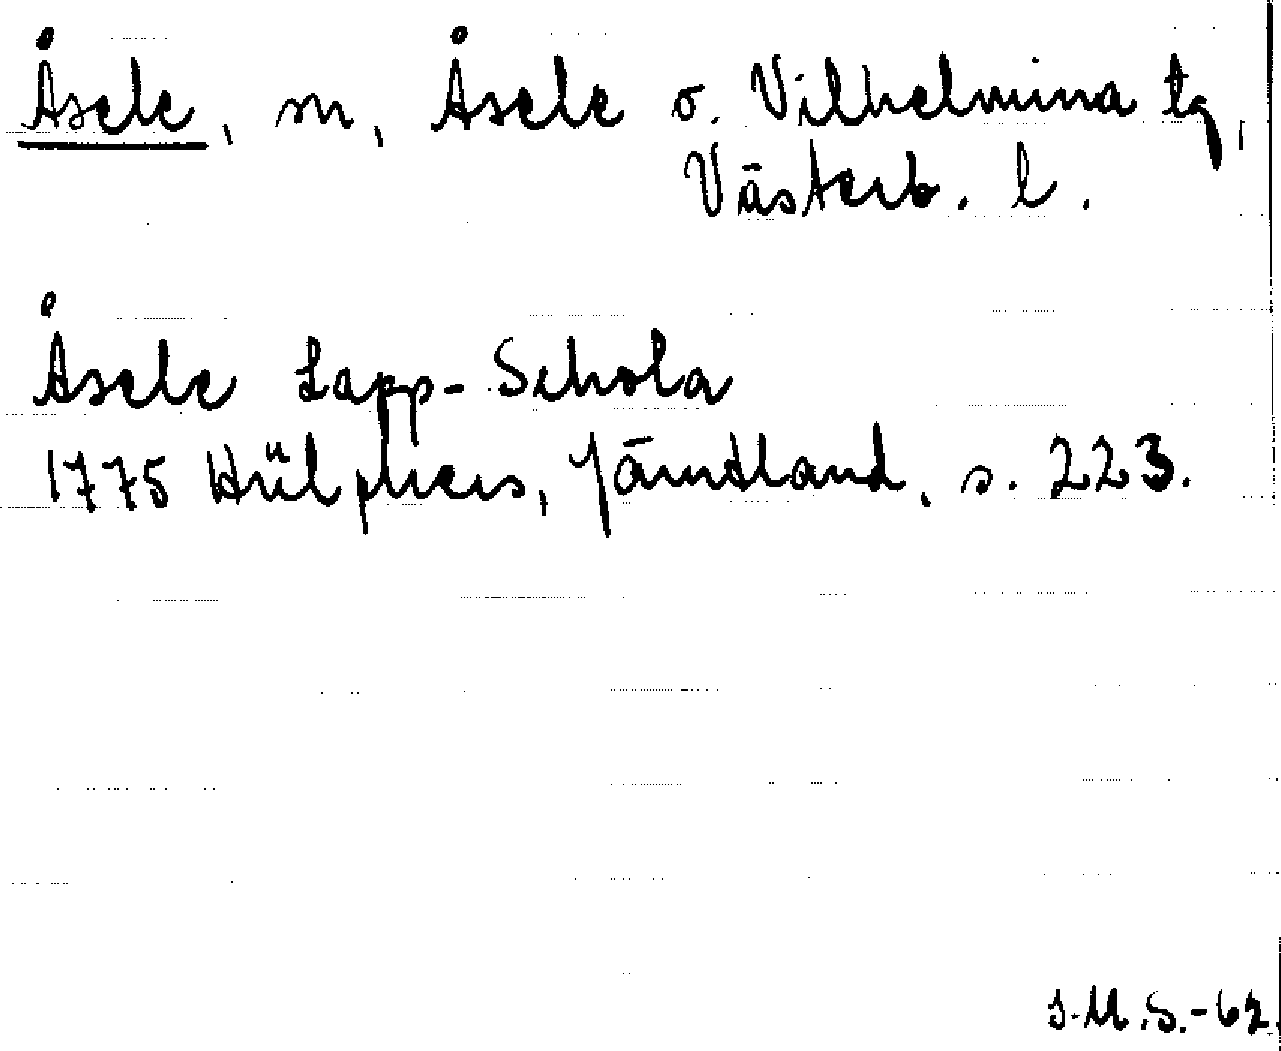 Åsele, sn, Åsele o. Vilhelmina tg,
Västerb. l.
Åsele Lapp-Schola
1775 Hülphers, Jämtland, s. 223.
J.M.S.-62.